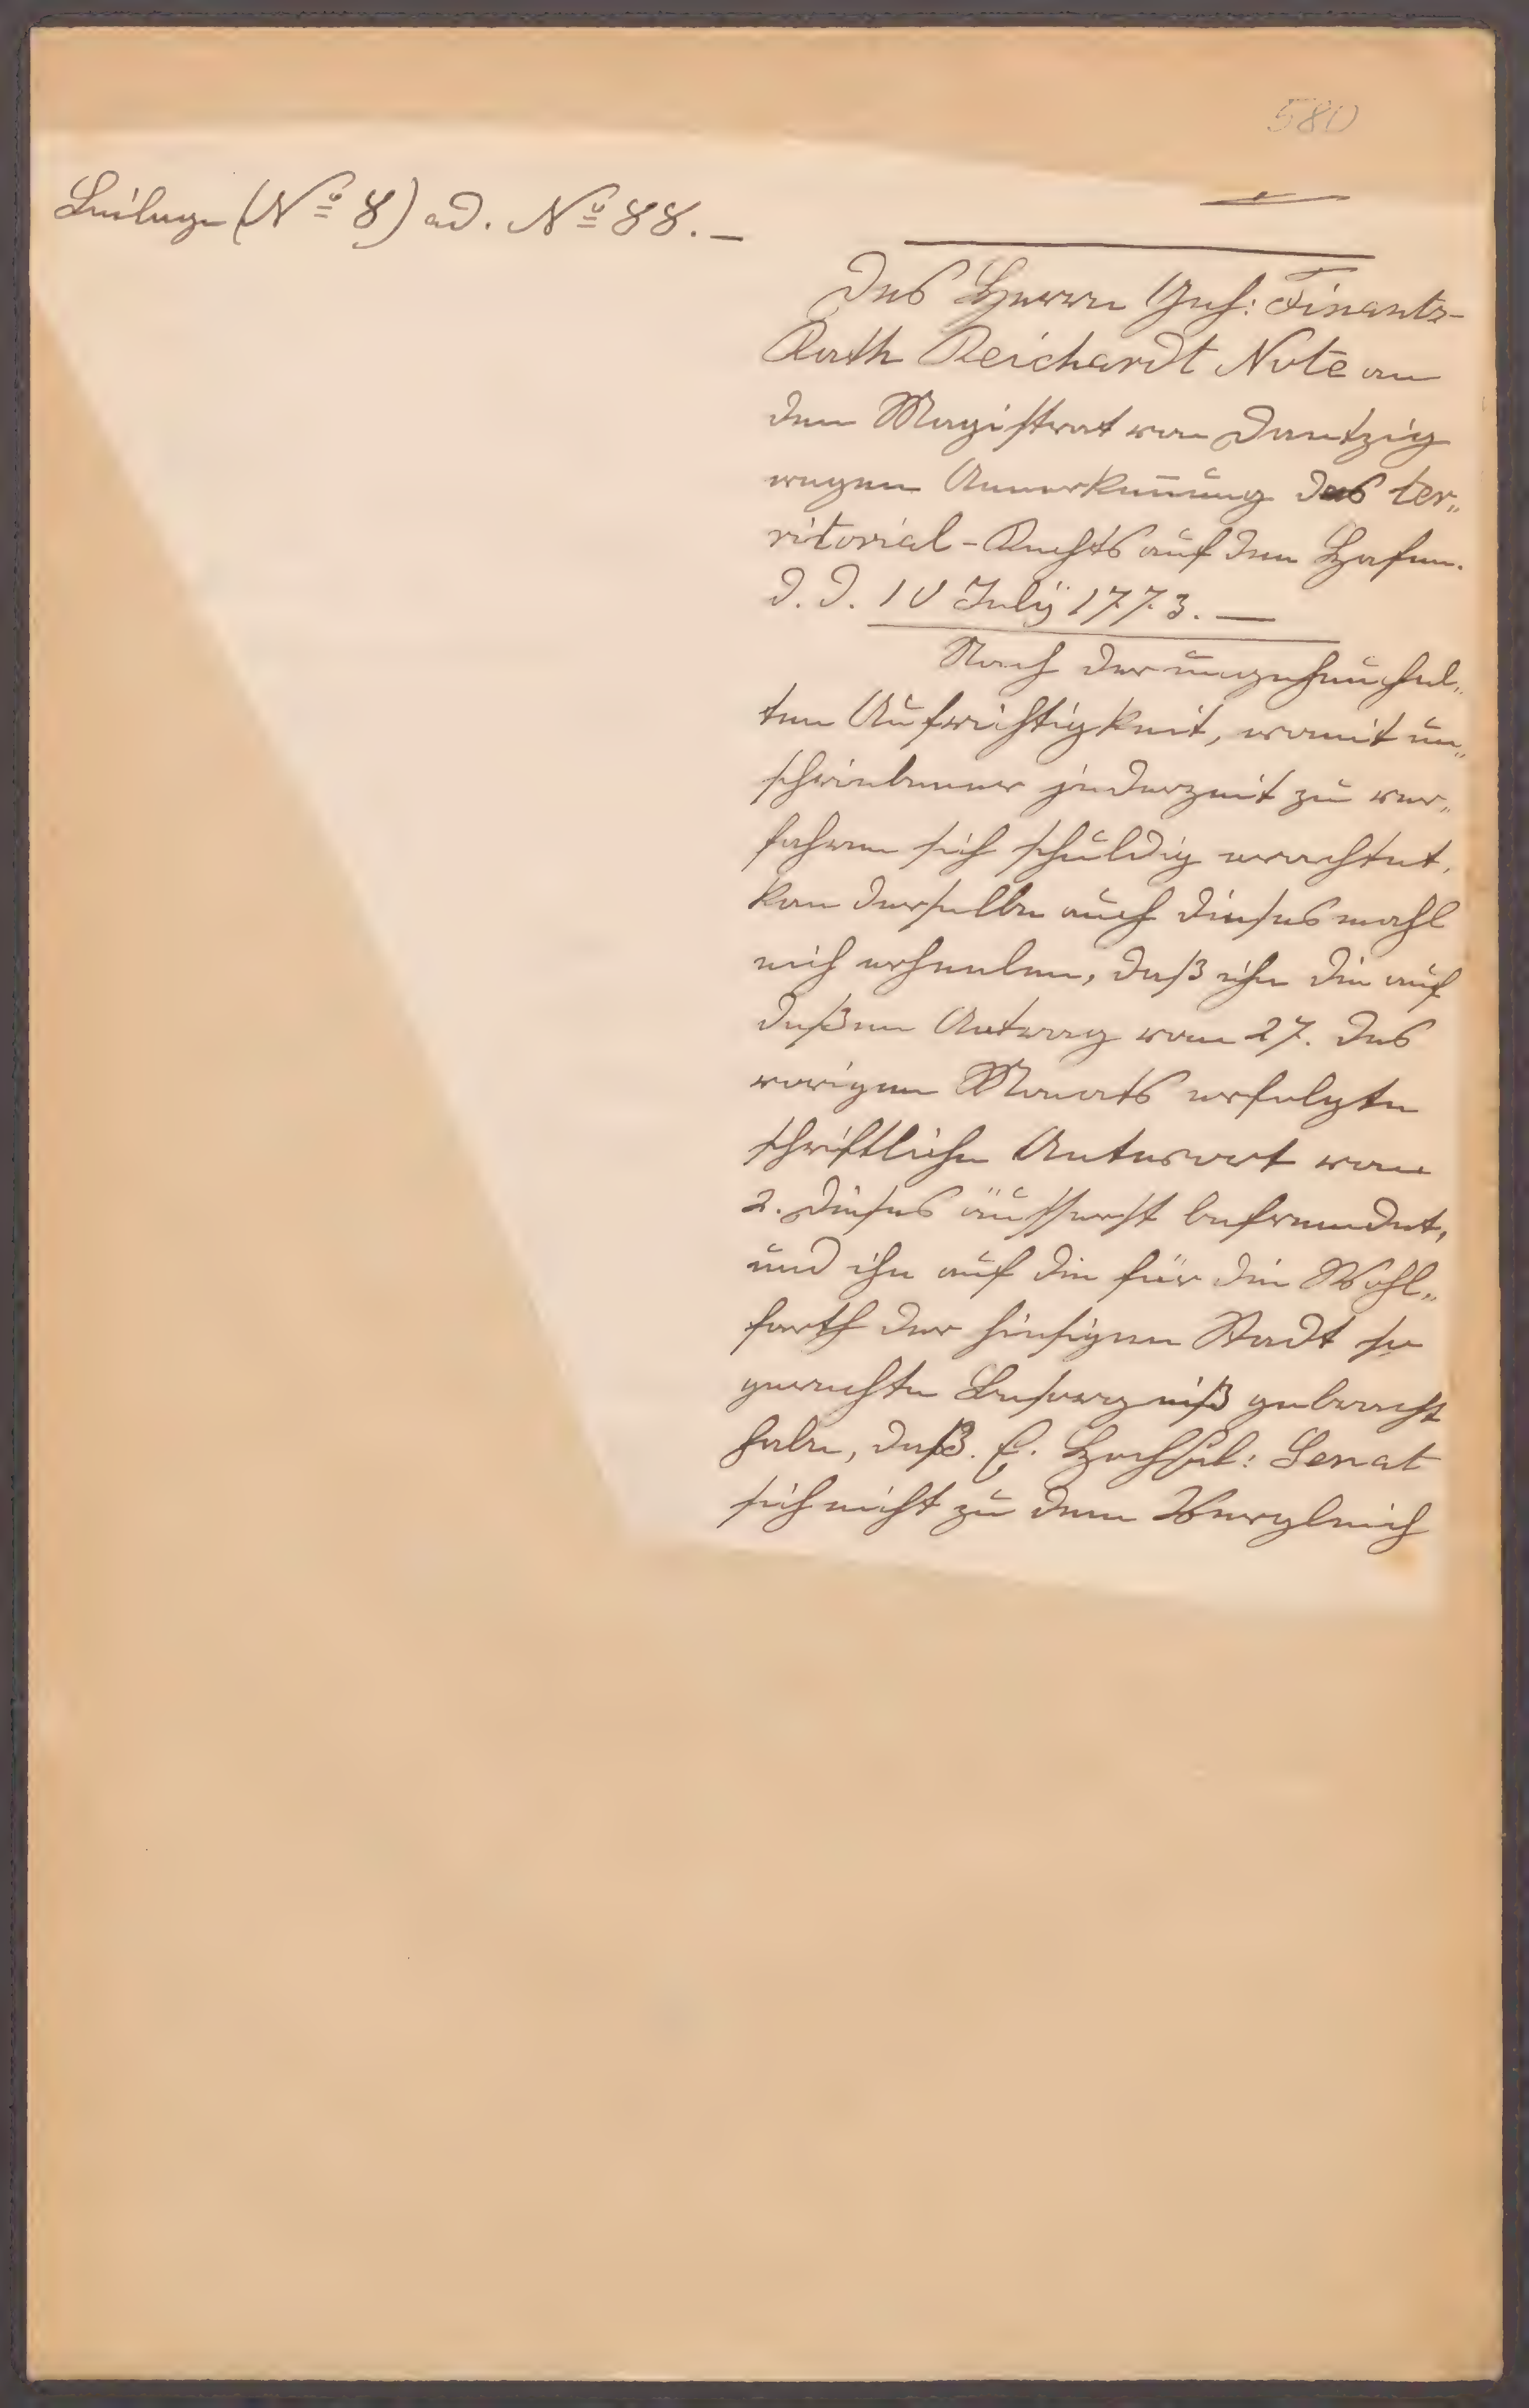 580
Beilage (No 8) ad. No 88. –
Des Herrn Geh: Finantz-
Rath Reichardt Note an
den Magistrat von Dantzig
wegen Anerkennung des ter„
ritorial-Rechts auf den Hafen.
d. d. 10 July 1773. –
Nach der ungeheuchel„
ten Aufrichtigkeit, womit un„
schriebener jederzeit zu ver„
fahren sich schuldig erachtet,
kan derselbe auch dieses mahl
nich verheelen, daß ihn die auf
deßen Antrag vom 27. des
vorigen Monats erfolgte
schriftliche Antwort vom
2. dieses äussest befremdet,
und ihn auf die für die Wohl„
farth der hiesigen Stadt so
gerechte Besorgniß gebracht
habe, daß E. Hochedl: Senat
sich nicht zu dem Vergleich